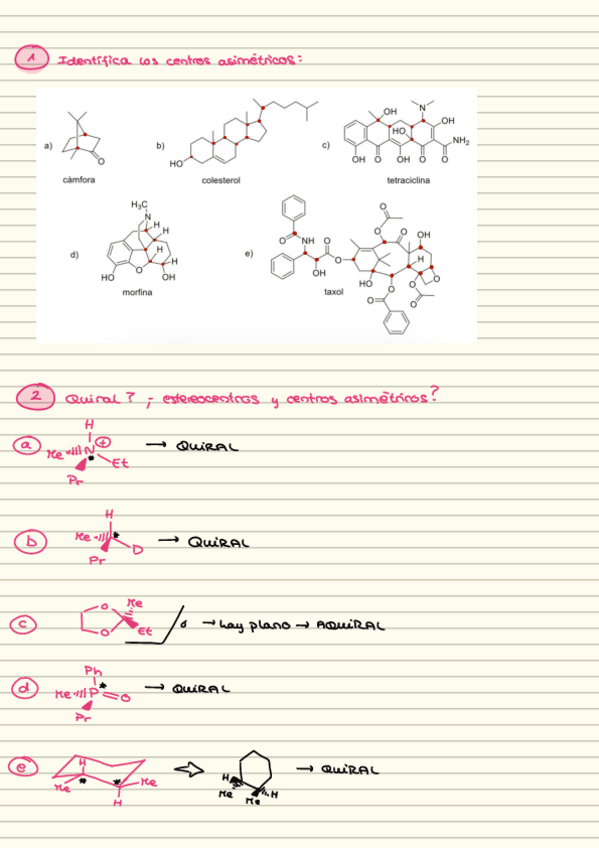 1 Identifica los centros asimétricos:
a) O
cámfora
b) HO
colesterol
c) OH N OH HO NH2 OH O OH O O
tetraciclina
d) H3C N H H H H O HO OH
morfina
e) O NH O OH O O O O OH H O HO O O O O
taxol
2 Quiral? ; estereocentros y centros asimétricos?
a H Me N + Et Pr * → QUIRAL
b H Me * D Pr → QUIRAL
c O O Me Et σ → hay plano → AQUIRAL
d Ph Me P * O Pr → QUIRAL
e H Me * * Me H H Me Me H → QUIRAL